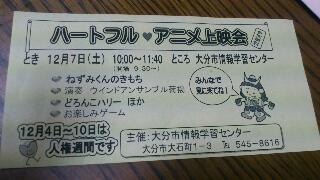 ハートフル♥アニメ上映会
とき 12月7日(土) 10:00~11:40 ところ 大分市情報学習センター
(開場 9:30~)
♥ ねずみくんのきもち
♥ 演奏 ウインドアンサンブル荷揚
♥ どろんこハリー ほか
♥ お楽しみゲーム
みんなで
見に来てね!
12月4日~10日は
人権週間です
主催:大分市情報学習センター
大分市大石町1-3 ℡ 545-8616